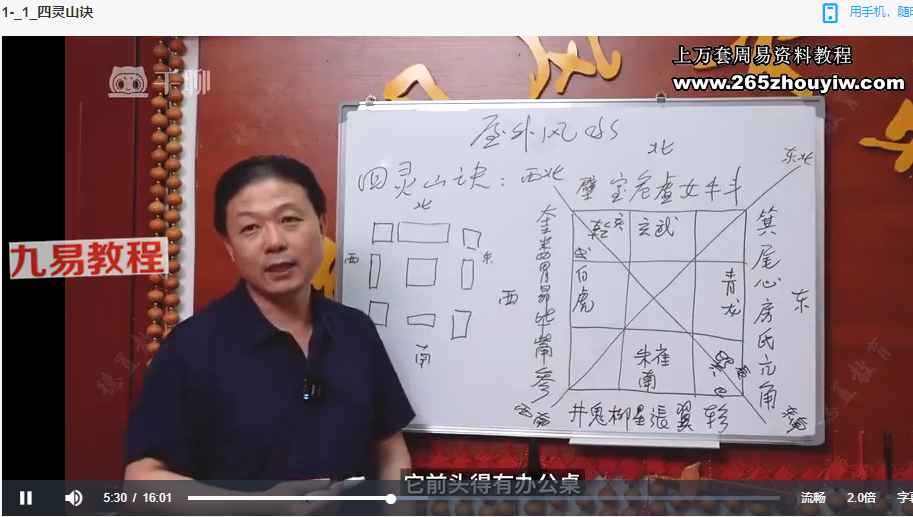 1-_1_四灵山诀
用手机，随
千聊
上万套周易资料教程
www.265zhouyiw.com
九易教程
屋外风水
四灵山诀：
北
西北
东北
璧宝危虚女牛斗
北
西
东
南
玄武
白虎
青龙
朱雀
南
西
东
奎娄胃昴毕觜参
箕尾心房氐亢角
井鬼柳星張翼轸
它前头得有办公桌
5:30 / 16:01
流畅
2.0倍